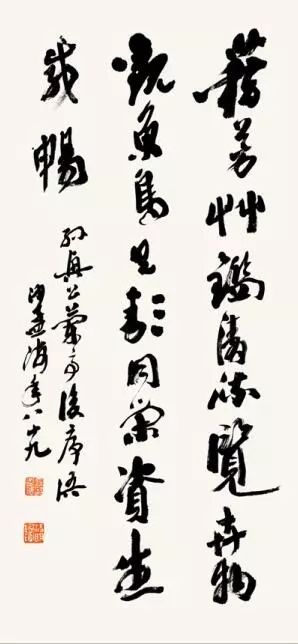 藉芳艸鑑清流覽卉物
觀魚鳥具同榮資生
咸暢
孫興公蘭亭後序語
沙孟海年八十九